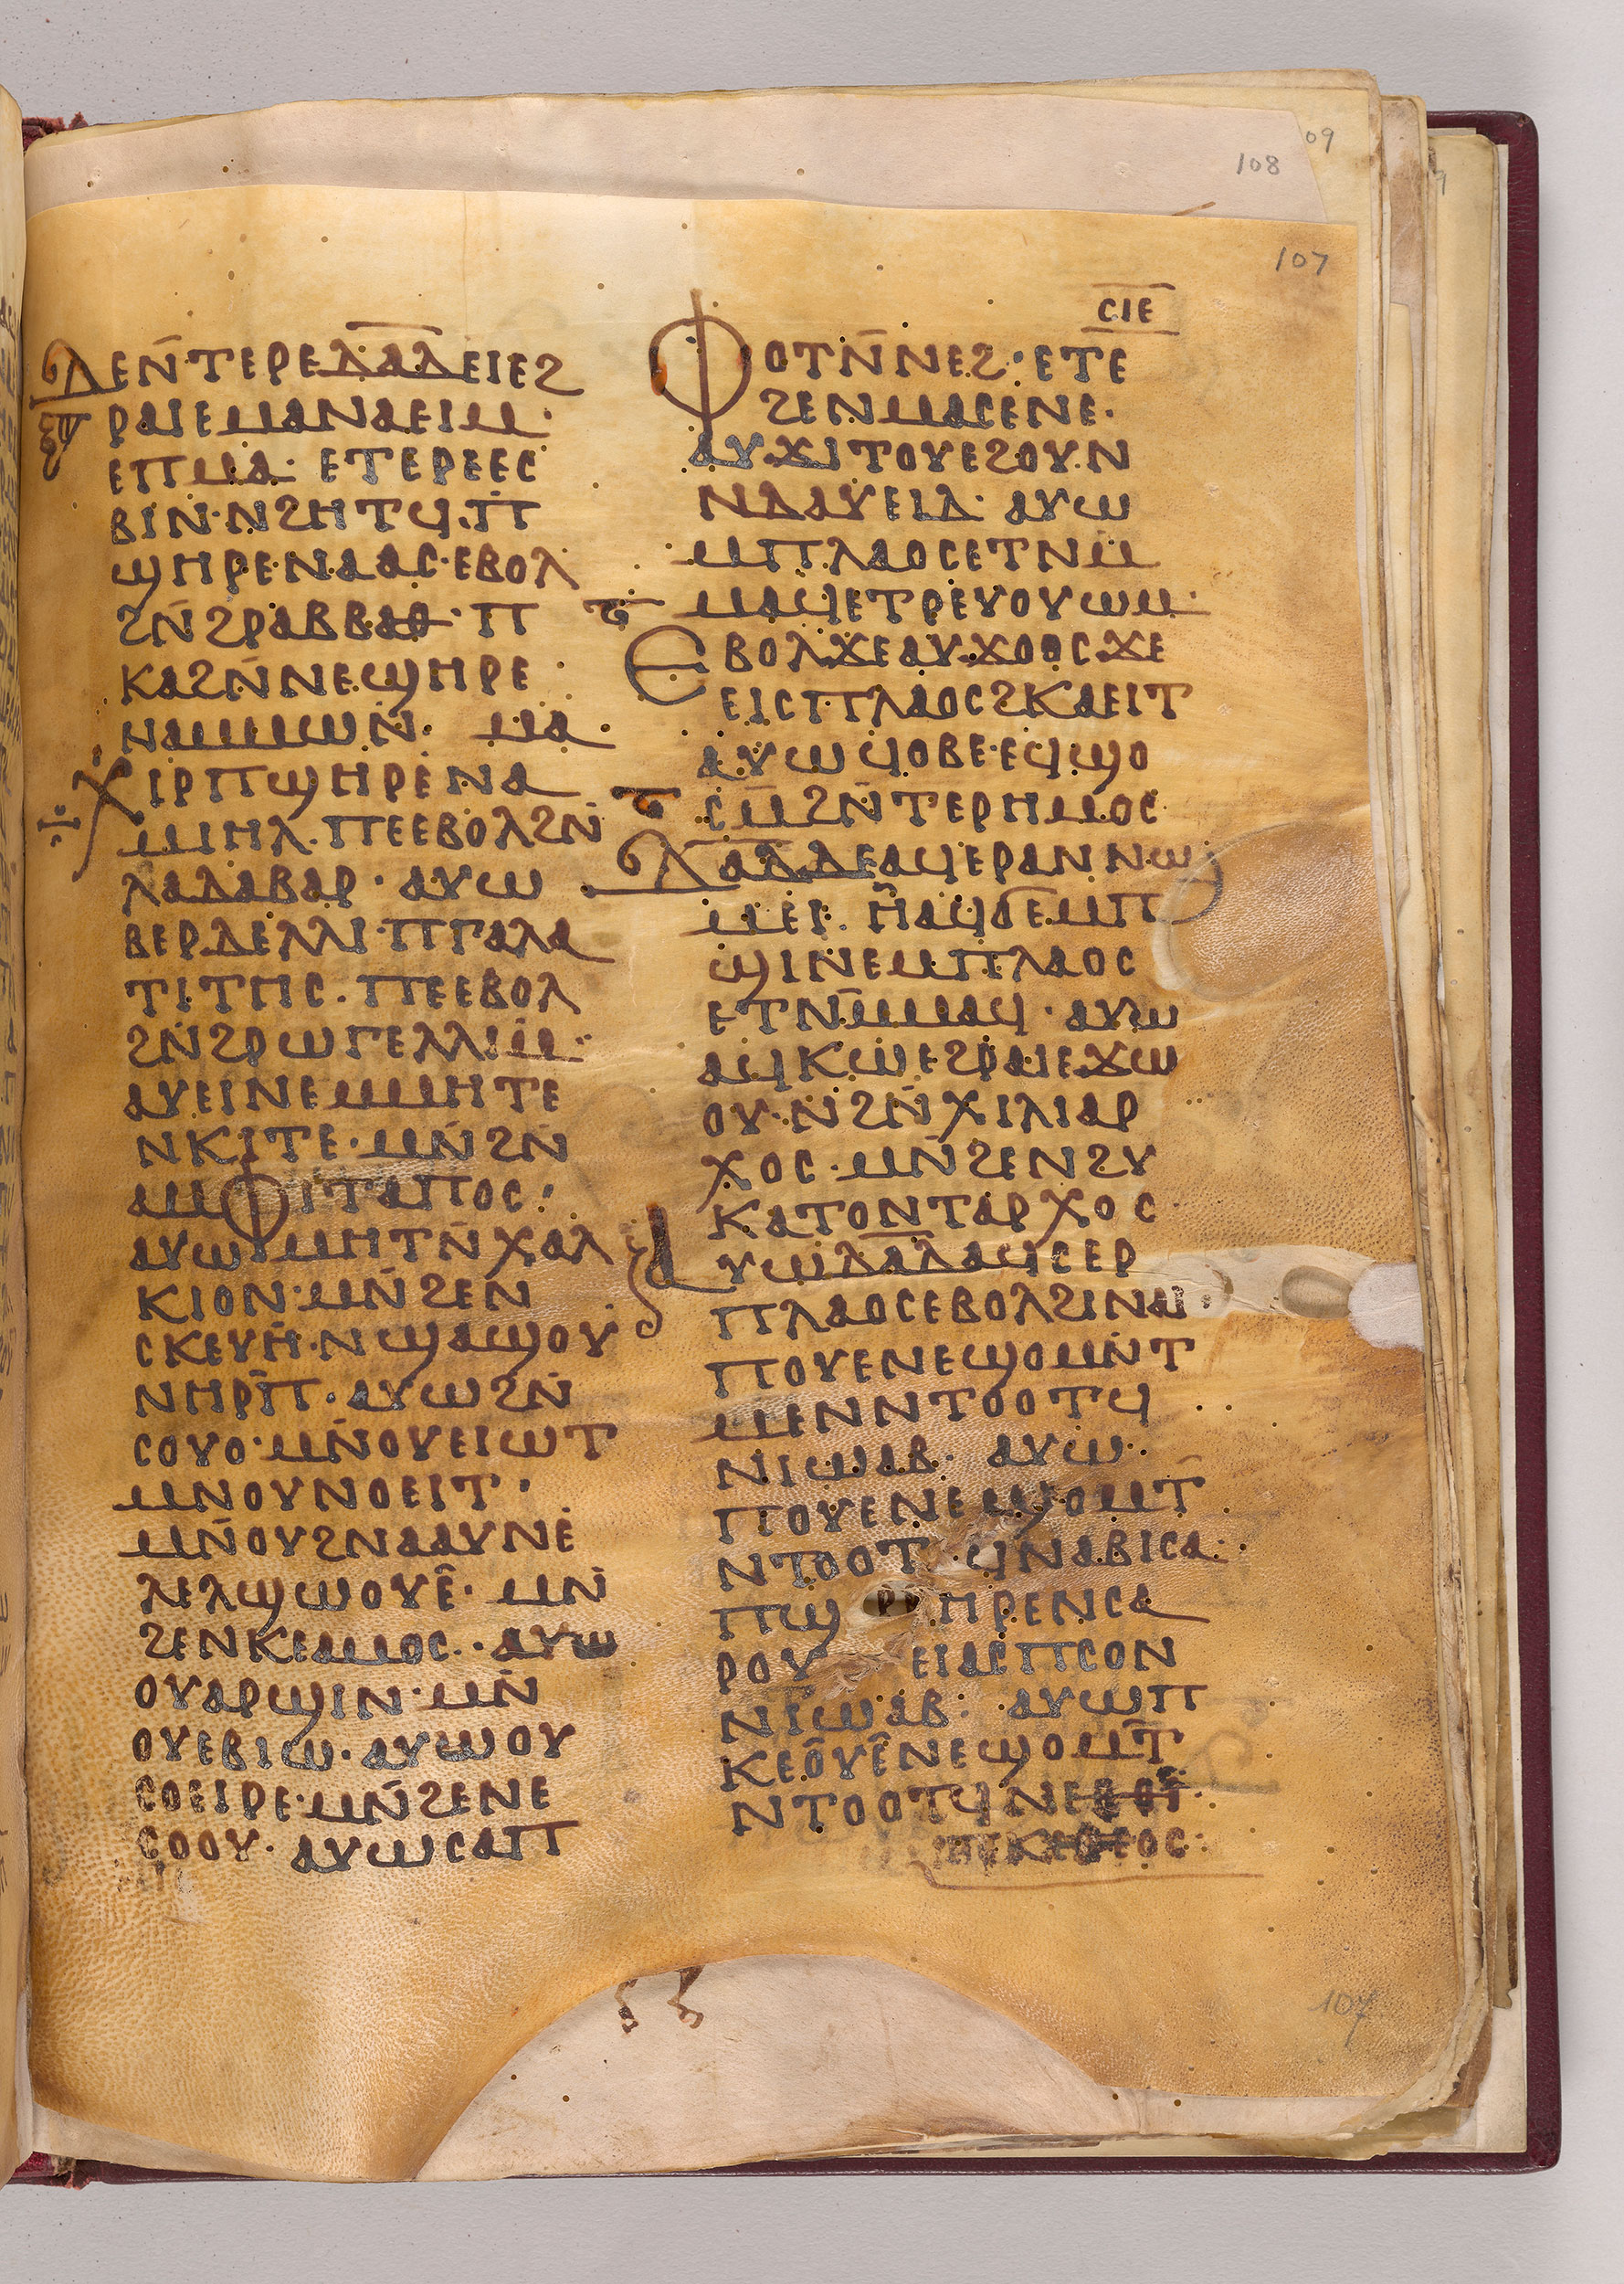 109
108
107
ⲥⲓⲉ
ⲇⲉⲛ̄ⲧⲉⲣⲉⲇⲁⲇⲉⲓⲉϩ
ⲣⲁⲓⲉⲙⲁⲛⲁⲉⲓⲙ·
ⲉⲡⲙⲁ· ⲉⲧⲉⲣⲉⲉⲥ
ⲃⲓⲛ·ⲛϩⲏⲧϥ·ⲡ̄
ϣⲏⲣⲉ·ⲛⲁⲁⲥ·ⲉⲃⲟⲗ
ϩⲛ̄ϩⲣⲁⲃⲃⲁⲑ·ⲡ
ⲕⲁϩⲛ̄ⲛⲉϣⲏⲣⲉ
ⲛⲁⲙⲙⲱⲛ̄· ⲙⲁ
ⲭⲓⲣⲡϣⲏⲣⲉⲛⲁ
ⲙⲓⲏⲗ·ⲡⲉⲉⲃⲟⲗϩⲛ̄
ⲗⲁⲇⲁⲃⲁⲣ· ⲁⲩⲱ
ⲃⲉⲣⲇⲉⲗⲗⲓ·ⲡⲅⲁⲗⲁ
ⲧⲓⲧⲏⲥ·ⲡⲉⲉⲃⲟⲗ
ϩⲛ̄ϩⲣⲱⲅⲉⲗⲗⲓⲙ·
ⲁⲩⲉⲓⲛⲉⲙⲙⲏⲧⲉ
ⲛⲕⲓⲧⲉ·ⲙⲛ̄ϩⲛ̄
ⲁⲙⲫⲓⲧⲁⲡⲟⲥ:
ⲁⲩⲱⲙⲏⲧⲛ̄ⲭⲁⲗ
ⲕⲓⲟⲛ·ⲙⲛ̄ϩⲉⲛ
ⲥⲕⲉⲩⲏ·ⲛϣⲁϣⲟⲩ
ⲛⲏⲣⲡ̄·ⲁⲩⲱϩⲛ̄
ⲥⲟⲩⲟ·ⲙⲛ̄ⲟⲩⲉⲓⲱⲧ
ⲙⲛⲟⲩⲛⲟⲉⲓⲧ·
ⲙⲛ̄ⲟⲩϩⲛⲁⲁⲩⲛⲉ
ⲗⲉⲗϣⲱⲟⲩⲉ̂· ⲙⲛ̄
ϩⲉⲛⲕⲉⲁⲙⲟⲥ·ⲁⲩⲱ
ⲟⲩⲁⲣϣⲓⲛ·ⲙⲛ̄
ⲟⲩⲉⲃⲓⲱ·ⲁⲩⲱⲟⲩ
ⲥⲟⲉⲓⲣⲉ·ⲙⲛ̄ϩⲉⲛⲉ
ⲥⲟⲟⲩ·ⲁⲩⲱⲥⲁⲡ
ⲫⲟⲧⲛ̄ⲛⲉϩ·ⲉⲧⲉ
ϩⲉⲛⲙⲁⲥⲉⲛⲉ·
ⲁⲩϫⲓⲧⲟⲩⲉϩⲟⲩⲛ
ⲛⲇⲁⲩⲉⲓⲇ· ⲁⲩⲱ
ⲙⲡⲗⲁⲟⲥⲉⲧⲛⲙ̄
ⲙⲁϥⲉⲧⲣⲉⲩⲟⲩⲱⲙ·
ⲉⲃⲟⲗϫⲉⲁⲩϫⲟⲟⲥϫⲉ
ⲉⲓⲥⲡⲗⲁⲟⲥϩⲕⲁⲉⲓⲧ
ⲁⲩⲱϥⲟⲃⲉ·ⲉϥϣⲟ
ⲥⲙ̄ϩⲛ̄ⲧⲉⲣⲏⲙⲟⲥ
ⲇⲁⲇⲇⲉⲁϥⲉⲣⲁⲛⲛⲱ
ⲙⲉⲓ· ⲏ̂ⲁϥϭⲉⲙⲡ
ϣⲓⲛⲉⲙⲡⲗⲁⲟⲥ
ⲉⲧⲛ̄ⲙⲙⲁϥ· ⲁⲩⲱ
ⲁϥⲕⲱⲉϩⲣⲁⲓⲉϫⲱ
ⲟⲩ·ⲛϩⲛ̄ⲭⲓⲗⲓⲁⲣ
ⲭⲟⲥ·ⲙⲛ̄ϩⲉⲛϩⲩ
ⲕⲁⲧⲟⲛⲧⲁⲣⲭⲟⲥ·
ⲁⲩⲱⲇⲁⲇⲁϥⲥⲉⲣ
ⲡⲗⲁⲟⲥⲉⲃⲟⲗϩⲓⲛⲁⲓ
ⲡⲟⲩⲉⲛⲉϣⲟⲙⲛ̄ⲧ
ⲙⲉⲛⲛⲧⲟⲟⲧϥ
ⲛⲓⲱⲁⲃ· ⲁⲩⲱ·
ⲡⲟⲩⲉⲛⲉϣⲟⲙⲧ̄
ⲛⲧⲟⲟⲧϥⲛⲁⲃⲓⲥⲁ·
ⲡϣⲏⲣⲉⲛⲥⲁ
ⲣⲟⲩⲉⲓⲁⲥⲡⲥⲟⲛ
ⲛⲓⲱⲁⲃ: ⲁⲩⲱⲡ
ⲕⲉⲟ̂ⲩⲉ̂ⲛⲉϣⲟⲙⲧ̄
ⲛⲧⲟⲟⲧϥ
107